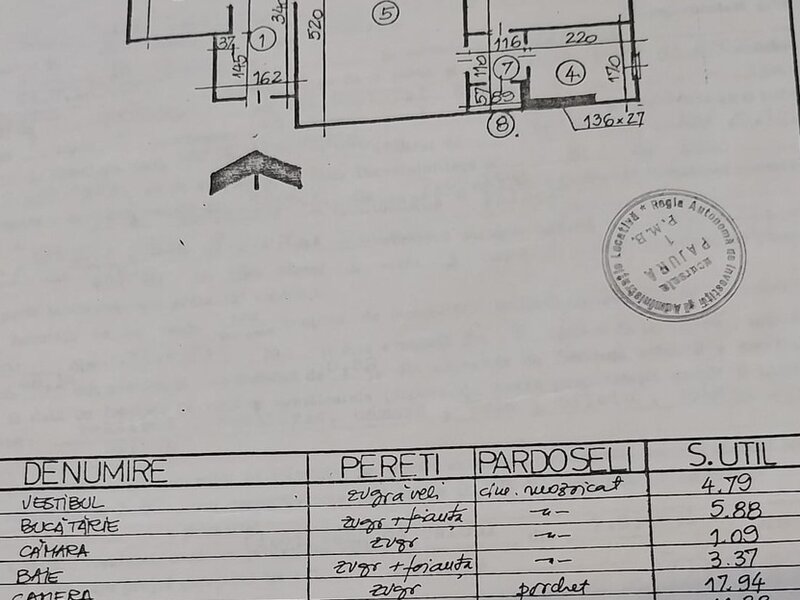 5
34
520
1
37
145
162
116
220
110
7
4
170
57
89
8
136×27
Regia Autonomă de Investiții și Administrație Locativă *
P.M.B.
1
PAJURA
DENUMIRE PEREȚI PARDOSELI S. UTIL
VESTIBUL zugrăveli cim. mozaicat 4.79
BUCĂTĂRIE zugr + faianță -"- 5.88
CĂMARA zugr -"- 1.09
BAIE zugr + faianță -"- 3.37
CAMERA zugr parchet 17.94